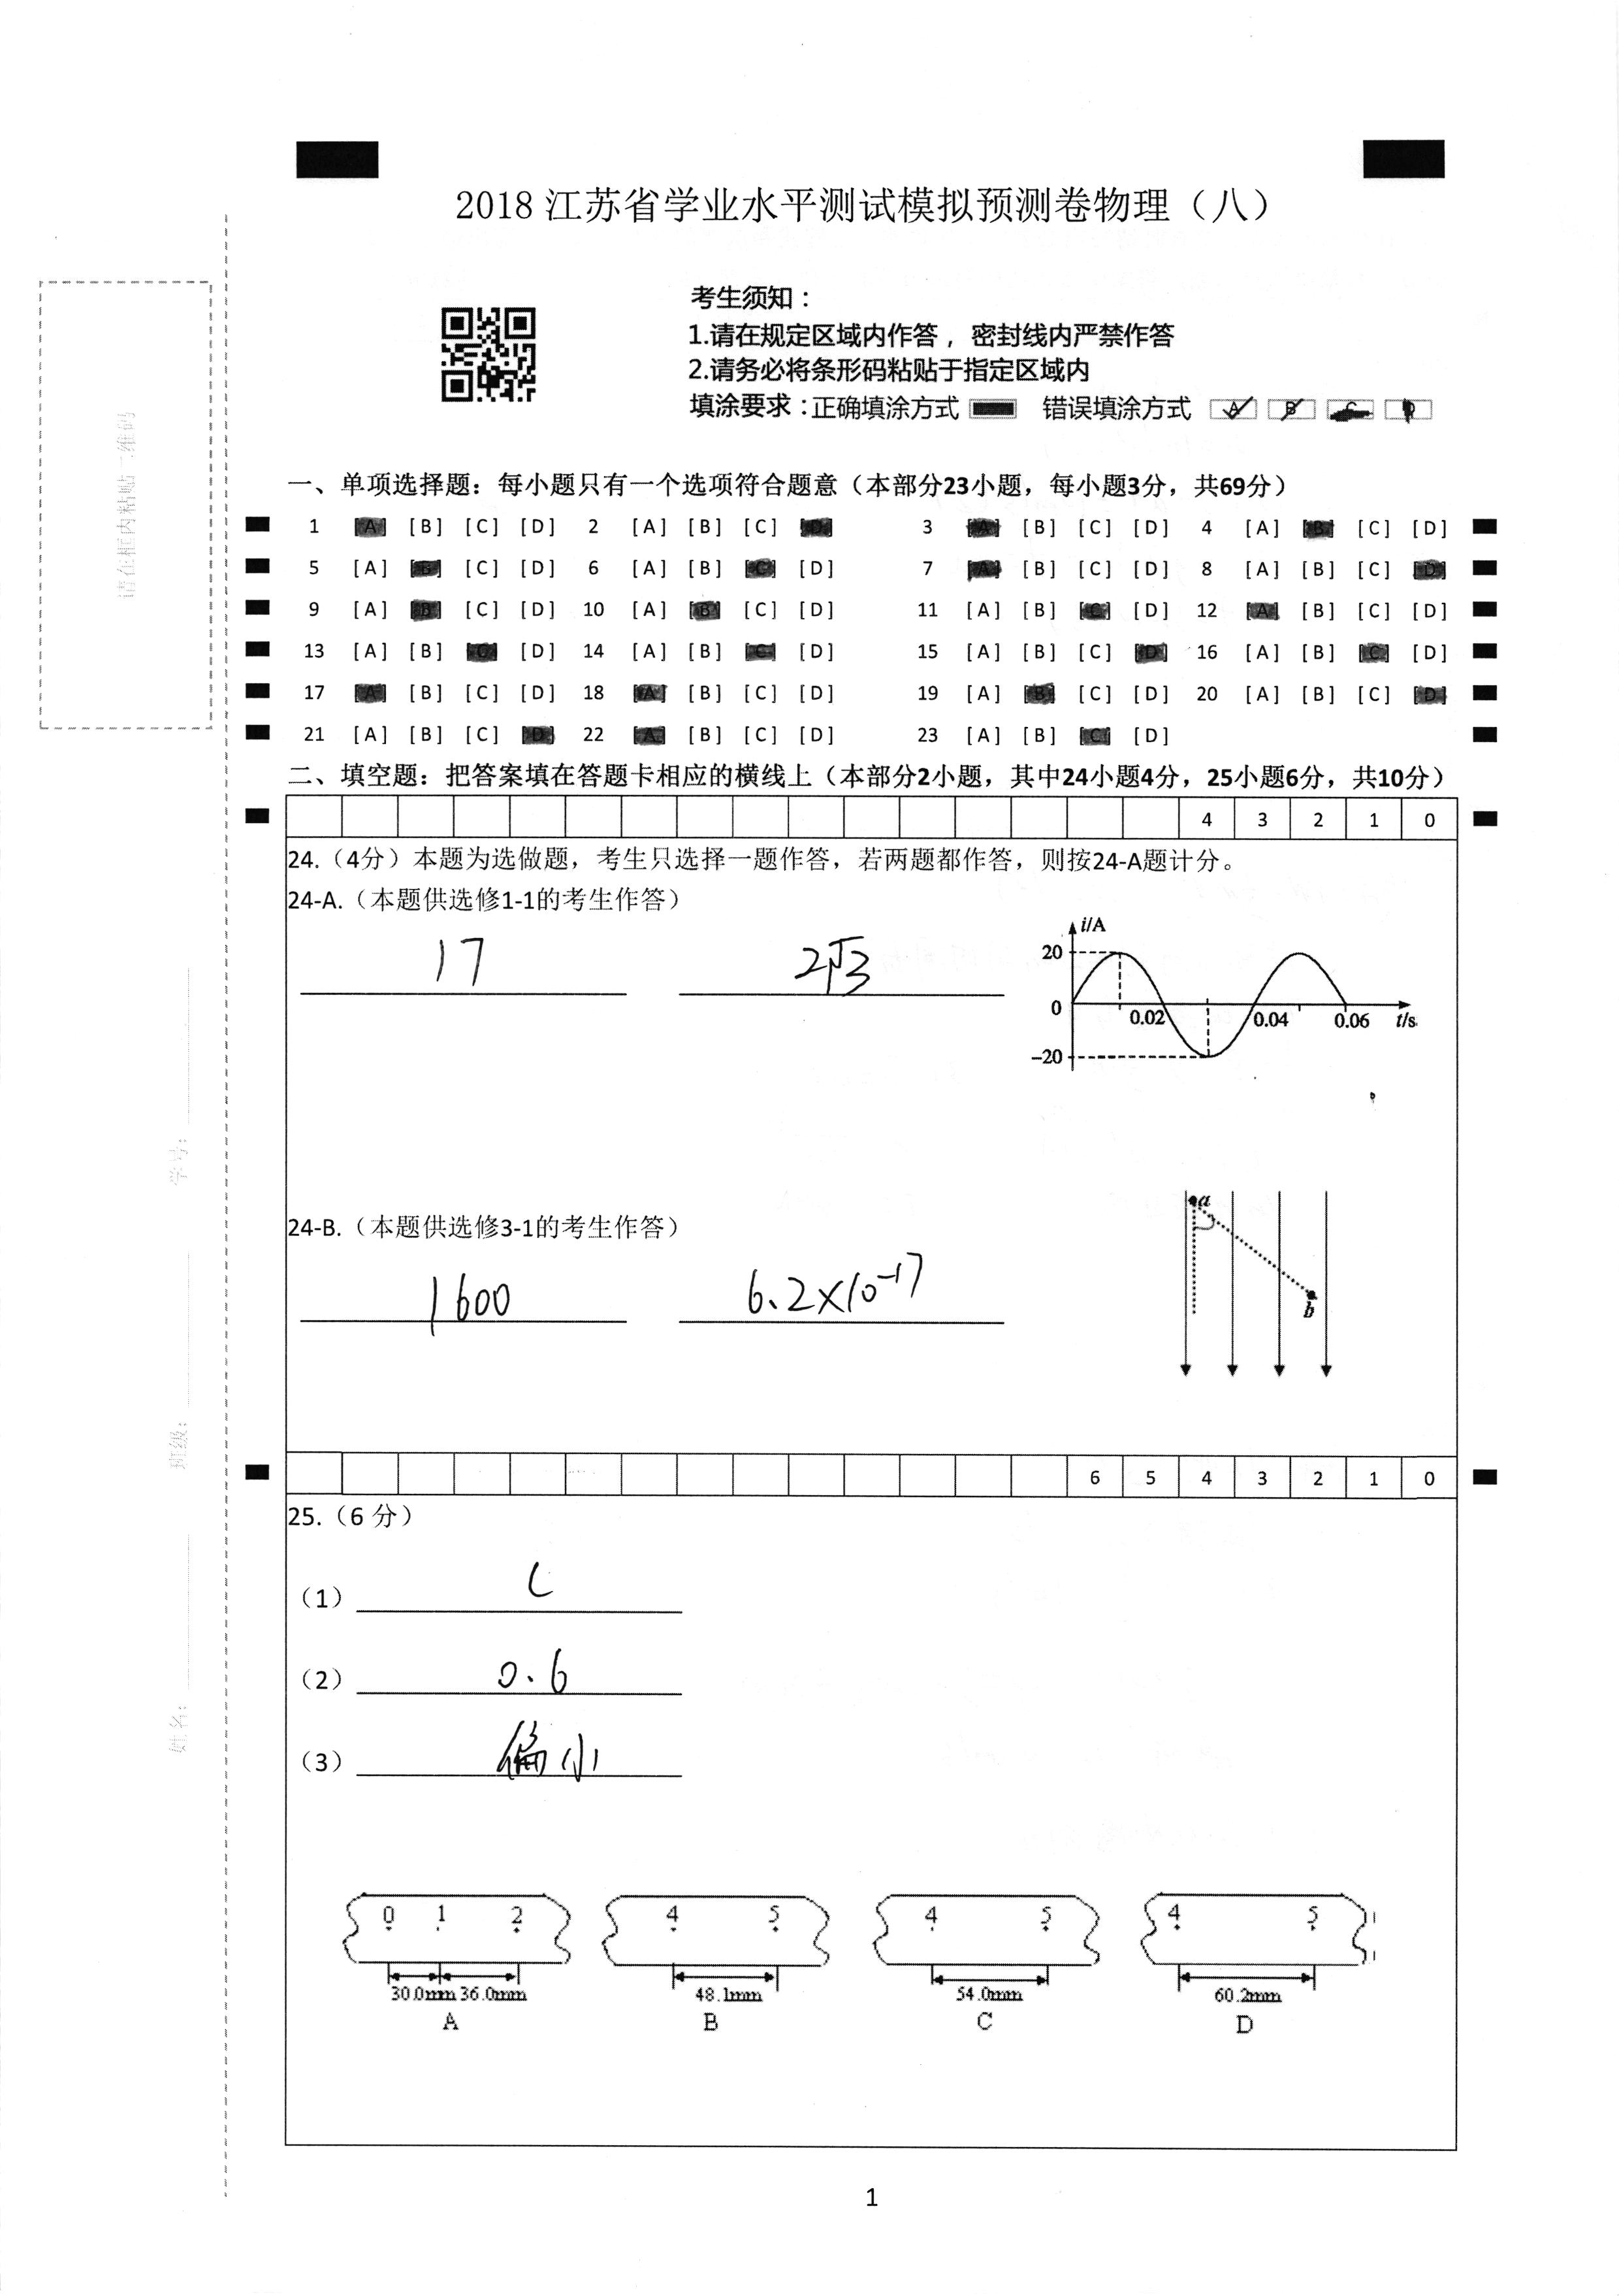 2018 江苏省学业水平测试模拟预测卷物理（八）
考生须知：
1.请在规定区域内作答，密封线内严禁作答
2.请务必将条形码粘贴于指定区域内
填涂要求：正确填涂方式 错误填涂方式 A B C D
请在框内粘贴二维码
学号：
班级：
姓名：
一、单项选择题：每小题只有一个选项符合题意（本部分23小题，每小题3分，共69分）
1 [A] [B] [C] [D] 2 [A] [B] [C] [D] 3 [A] [B] [C] [D] 4 [A] [B] [C] [D]
5 [A] [B] [C] [D] 6 [A] [B] [C] [D] 7 [A] [B] [C] [D] 8 [A] [B] [C] [D]
9 [A] [B] [C] [D] 10 [A] [B] [C] [D] 11 [A] [B] [C] [D] 12 [A] [B] [C] [D]
13 [A] [B] [C] [D] 14 [A] [B] [C] [D] 15 [A] [B] [C] [D] 16 [A] [B] [C] [D]
17 [A] [B] [C] [D] 18 [A] [B] [C] [D] 19 [A] [B] [C] [D] 20 [A] [B] [C] [D]
21 [A] [B] [C] [D] 22 [A] [B] [C] [D] 23 [A] [B] [C] [D]
二、填空题：把答案填在答题卡相应的横线上（本部分2小题，其中24小题4分，25小题6分，共10分）
4 3 2 1 0
24.（4分）本题为选做题，考生只选择一题作答，若两题都作答，则按24-A题计分。
24-A.（本题供选修1-1的考生作答）
17 2√3
i/A
20
0 0.02 0.04 0.06 t/s
-20
24-B.（本题供选修3-1的考生作答）
1600 6.2×10⁻¹⁷
a
b
6 5 4 3 2 1 0
25.（6 分）
（1） C
（2） 0.6
（3） 偏小
0 1 2 4 5 4 5 4 5
30.0mm 36.0mm 48.1mm 54.0mm 60.2mm
A B C D
1